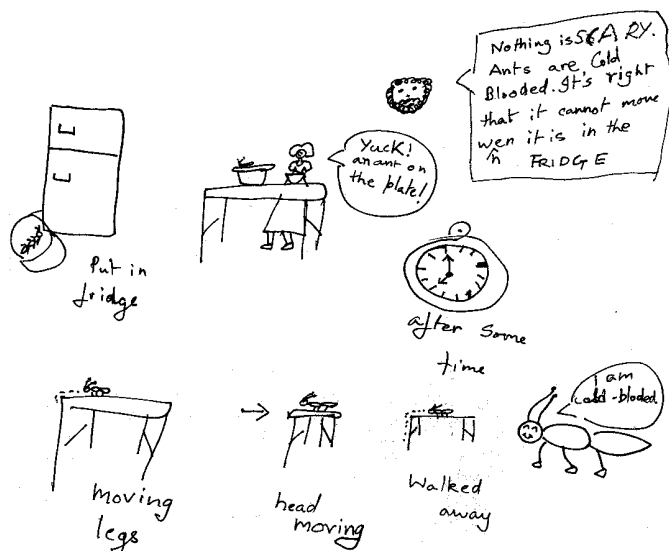 Nothing is SCA RY.
Ants are Cold
Blooded. It's right
that it cannot move
wen it is in the
h
FRIDGE
Yuck!
an ant on
the plate!
Put in
fridge
after Some
time
I am
cold-bloded
moving
legs
head
moving
Walked
away